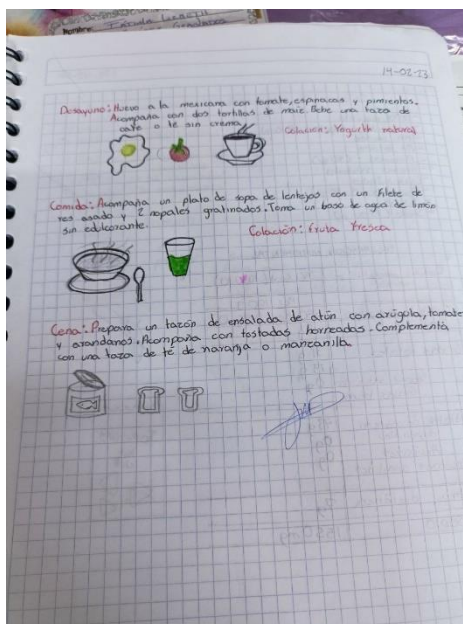 Nombre:
14-02-23
Desayuno: Huevo a la mexicana con tomate, espinacas y pimientos.
Acompaña con dos tortillas de maiz. Bebe una taza de
café o té sin crema.
Colacion: Yogurth natural
Comida: Acompaña un plato de sopa de lentejas con un filete de
res asado y 2 nopales gratinados. Toma un baso de agua de limón
sin edulcorante.
Colación: Fruta Fresca
Cena: Prepara un tazón de ensalada de atún con arúgola, tomate
y arandanos. Acompaña con tostadas horneadas. Complementa
con una taza de té de naranja o manzanilla.